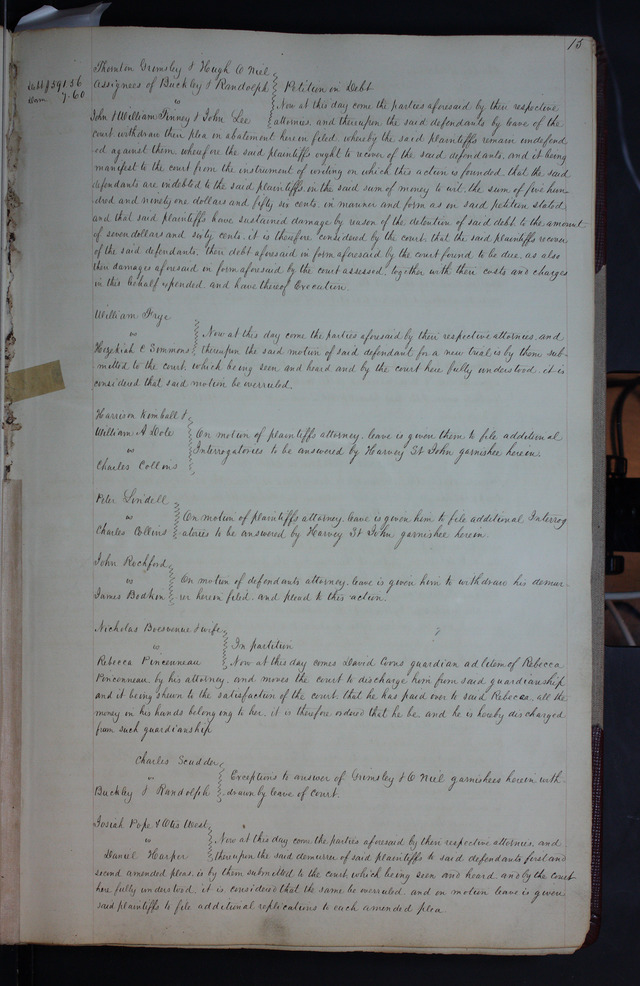 15
Thornton Grimsley & Hugh O Niel
Assignees of Buckley & Randolph Petition in Debt
Debt $591.56
Dam 7.60
vs Now at this day come the parties aforesaid by their respective
John & William Finney & John Lee attornies, and thereupon the said defendants by leave of the
court withdraw their plea in abatement herein filed, whereby the said plaintiffs remain undefend
ed against them, wherefore the said plaintiffs ought to recover of the said defendants, and it being
manifest to the court from the instrument of writing on which this action is founded, that the said
defendants are indebted to the said plaintiffs, in the said sum of money to wit, the sum of five hun
dred and ninety one dollars and fifty six cents, in manner and form as in said petition stated
and that said plaintiffs have sustained damage by reason of the detention of said debt to the amount
of seven dollars and sixty cents, it is therefore considered by the court, that the said plaintiffs recover
of the said defendants, their debt aforesaid in form aforesaid by the court found to be due, as also
their damages aforesaid in form aforesaid by the court assessed, together with their costs and charges
in this behalf expended, and have thereof Execution.
William Frye
vs Now at this day come the parties aforesaid by their respective attornies, and
Hezekiah C Simmons thereupon the said motion of said defendant for a new trial is by them sub-
mitted to the court, which being seen and heard and by the court here fully understood, it is
considered that said motion be overruled.
Harrison Kimball &
William A Dole On motion of plaintiffs attorney, leave is given them to file additional
vs Interrogatories to be answered by Harvey St John garnishee herein.
Charles Collins
Peter Lindell
vs On motion of plaintiffs attorney, leave is given him to file additional Interrog
Charles Collins atories to be answered by Harvey St John garnishee herein.
John Rochford
vs On motion of defendants attorney, leave is given him to withdraw his demur-
James Bodkin rer herein filed, and plead to this action.
Nicholas Boisvenue & wife
vs In partition
Rebecca Pinconneau Now at this day comes David Coons guardian ad litem of Rebecca
Pinconneau by his attorney, and moves the court to discharge him from said guardianship
and it being shewn to the satisfaction of the court that he has paid over to said Rebecca, all the
money in his hands belonging to her, it is therefore ordered that he be and he is hereby discharged
from such guardianship
Charles Scudder
vs Exceptions to answer of Grimsley & O Niel garnishees herein with-
Buckley & Randolph drawn by leave of court.
Josiah Pope & Otis West
vs Now at this day come the parties aforesaid by their respective attornies, and
Daniel Harper thereupon the said demurrer of said plaintiffs to said defendants first and
second amended pleas, is by them submitted to the court which being seen and heard and by the court
here fully understood it is considered that the same be overruled, and on motion leave is given
said plaintiffs to file additional replications to each amended plea